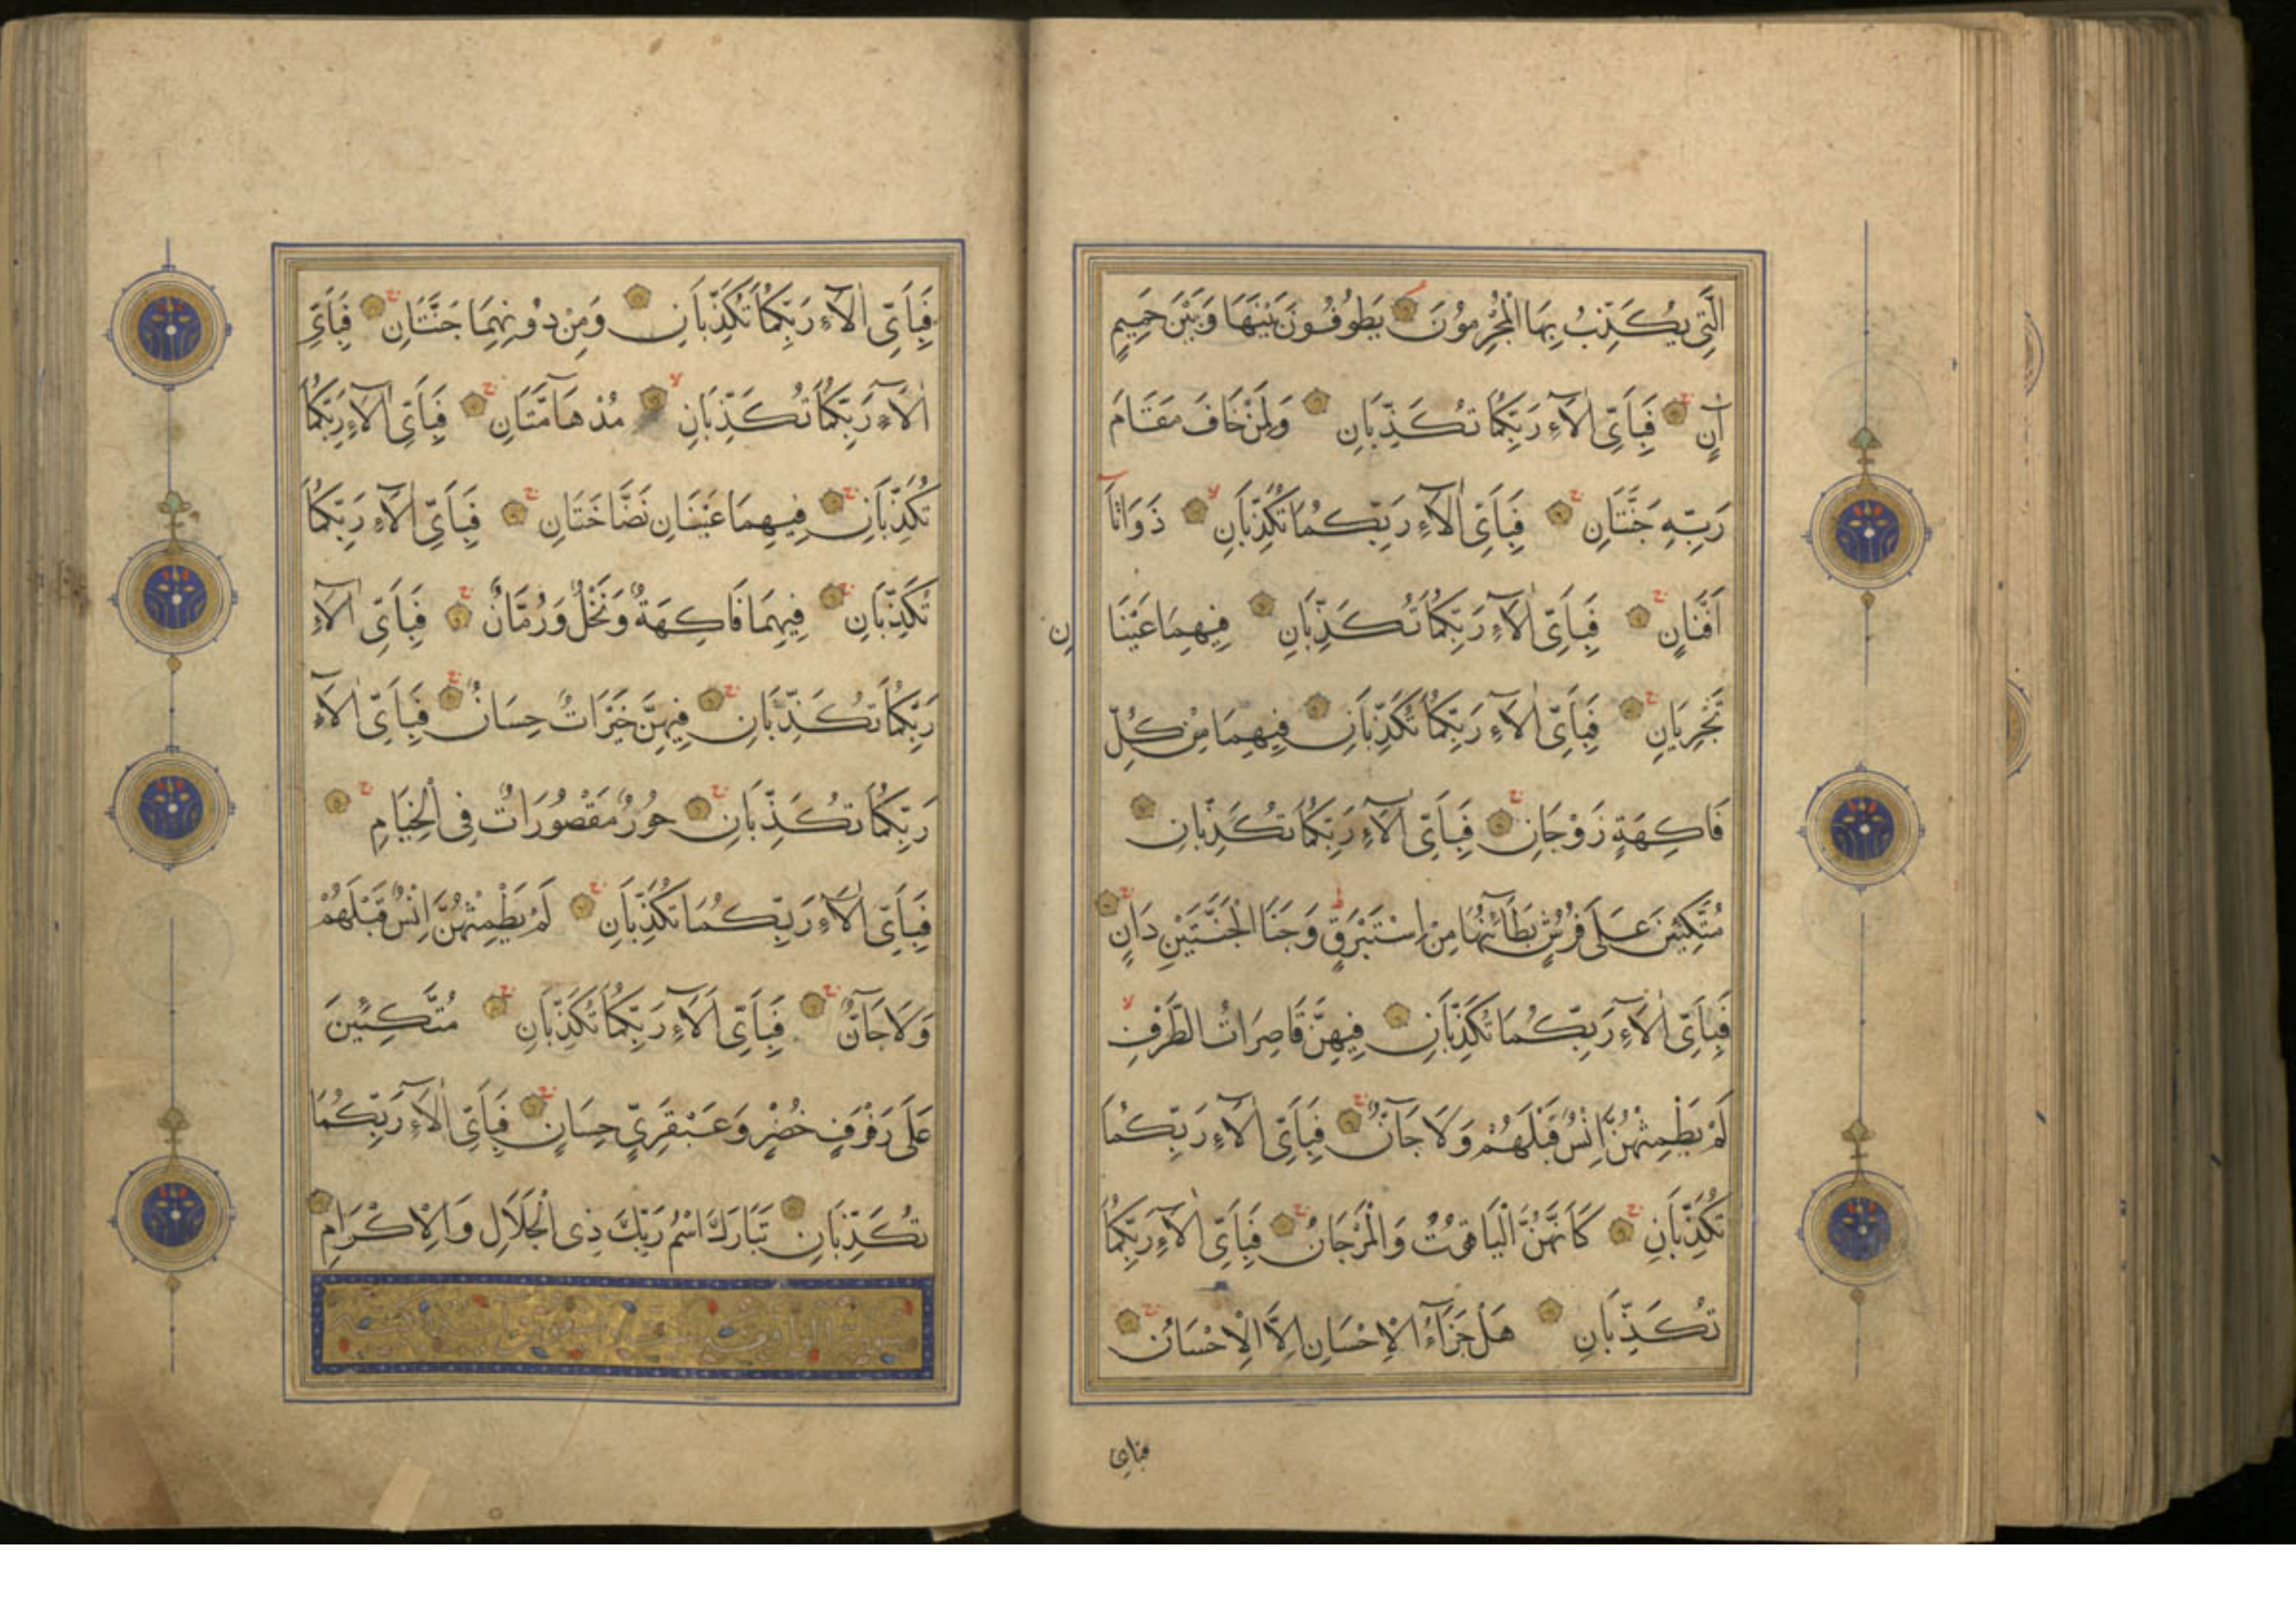 الَّتِى يُكَذِّبُ بِهَا الْمُجْرِمُونَ يَطُوفُونَ بَيْنَهَا وَبَيْنَ حَمِيمٍ
اٰنٍ فَبِاَىِّ اٰلَآءِ رَبِّكُمَا تُكَذِّبَانِ وَلِمَنْ خَافَ مَقَامَ
رَبِّهِ جَنَّتَانِ فَبِاَىِّ اٰلَآءِ رَبِّكُمَا تُكَذِّبَانِ ذَوَاتَآ
اَفْنَانٍ فَبِاَىِّ اٰلَآءِ رَبِّكُمَا تُكَذِّبَانِ فِيهِمَا عَيْنَا
نِ
تَجْرِيَانِ فَبِاَىِّ اٰلَآءِ رَبِّكُمَا تُكَذِّبَانِ فِيهِمَا مِنْ كُلِّ
فَاكِهَةٍ زَوْجَانِ فَبِاَىِّ اٰلَآءِ رَبِّكُمَا تُكَذِّبَانِ
مُتَّكِئِينَ عَلَى فُرُشٍ بَطَآئِنُهَا مِنْ اِسْتَبْرَقٍ وَجَنَا الْجَنَّتَيْنِ دَانٍ
فَبِاَىِّ اٰلَآءِ رَبِّكُمَا تُكَذِّبَانِ فِيهِنَّ قَاصِرَاتُ الطَّرْفِ
لَمْ يَطْمِثْهُنَّ اِنْسٌ قَبْلَهُمْ وَلَا جَآنٌّ فَبِاَىِّ اٰلَآءِ رَبِّكُمَا
تُكَذِّبَانِ كَاَنَّهُنَّ الْيَاقُوتُ وَالْمَرْجَانُ فَبِاَىِّ اٰلَآءِ رَبِّكُمَا
تُكَذِّبَانِ هَلْ جَزَآءُ الْاِحْسَانِ اِلَّا الْاِحْسَانُ
فباى
فَبِاَىِّ اٰلَآءِ رَبِّكُمَا تُكَذِّبَانِ وَمِنْ دُونِهِمَا جَنَّتَانِ فَبِاَىِّ
اٰلَآءِ رَبِّكُمَا تُكَذِّبَانِ مُدْهَآمَّتَانِ فَبِاَىِّ اٰلَآءِ رَبِّكُمَا
تُكَذِّبَانِ فِيهِمَا عَيْنَانِ نَضَّاخَتَانِ فَبِاَىِّ اٰلَآءِ رَبِّكُمَا
تُكَذِّبَانِ فِيهِمَا فَاكِهَةٌ وَنَخْلٌ وَرُمَّانٌ فَبِاَىِّ اٰلَآءِ
رَبِّكُمَا تُكَذِّبَانِ فِيهِنَّ خَيْرَاتٌ حِسَانٌ فَبِاَىِّ اٰلَآءِ
رَبِّكُمَا تُكَذِّبَانِ حُورٌ مَقْصُورَاتٌ فِى الْخِيَامِ
فَبِاَىِّ اٰلَآءِ رَبِّكُمَا تُكَذِّبَانِ لَمْ يَطْمِثْهُنَّ اِنْسٌ قَبْلَهُمْ
وَلَا جَآنٌّ فَبِاَىِّ اٰلَآءِ رَبِّكُمَا تُكَذِّبَانِ مُتَّكِئِينَ
عَلَى رَفْرَفٍ خُضْرٍ وَعَبْقَرِىٍّ حِسَانٍ فَبِاَىِّ اٰلَآءِ رَبِّكُمَا
تُكَذِّبَانِ تَبَارَكَ اسْمُ رَبِّكَ ذِى الْجَلَالِ وَالْاِكْرَامِ